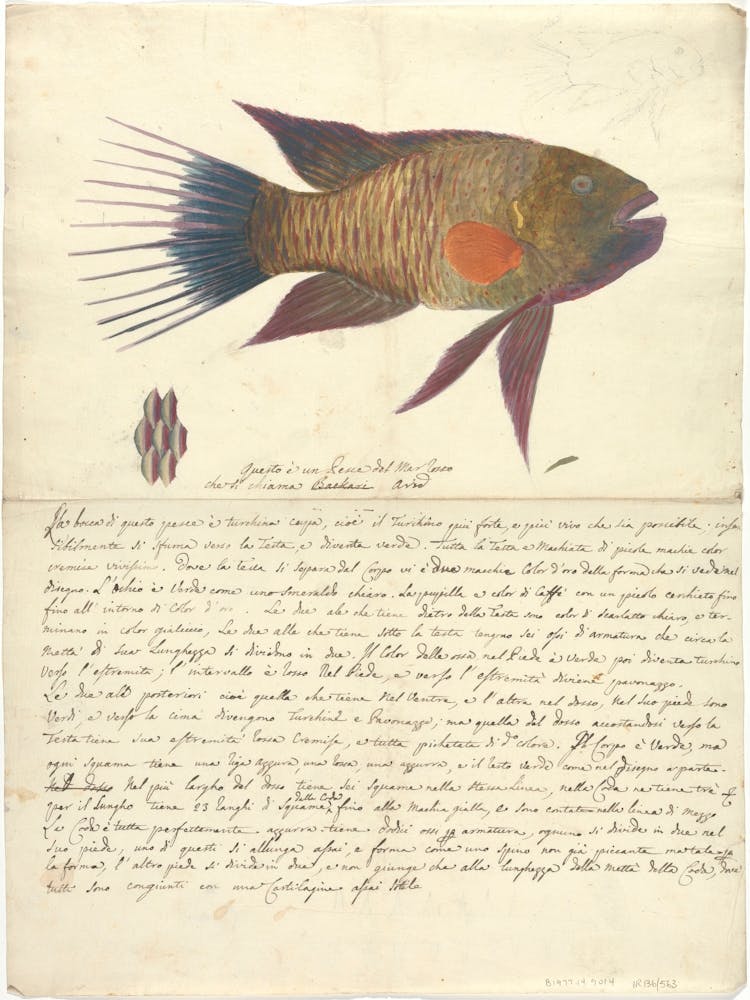 Questo è un Pesce del Mar Rosso
che si chiama Backari Arod
La bocca di questo pesce è turchina carga, cioè il Turchino più forte, e più vivo che sia possibile; insen
sibilmente si sfuma verso la testa, e diventa verde. Tutta la Testa è Machiata di picole machie color
cremise vivissimo. Dove la testa si separa dal Corpo vi è due macchie Color d'oro della forma che si vede nel
disegno. L'Ochio è Verde come uno smeraldo chiaro. La pupilla e color di Caffè con un picolo cerchieto fino
fino all' intorno di Color d'oro. Le due ale che tiene dietro della Testa sono color di scarlatto chiaro, e ter-
minano in color gialiccio, Le due alle che tiene sotto la testa tengno sei ossi d'armatura che circa la
Metta di sua Lunghezza si dividono in due. Il Color delle ossa nel Piede è Verde poi diventa turchino
verso l'estremita; l'intervallo è Rosso Nel Piede, e verso l'estremità diviene pavonazzo.
Le due ale posteriori cioè quella che tiene Nel Ventre, e l'altra nel dosso, Nel suo piede sono
Verdi, e verso la cima divengono Turchine e Pavonazze; ma quella del dosso accostandosi verso la
Testa tiene sua estremità Rossa Cremise, e tutta pichetata di d.º colore. Il Corpo è Verde, ma
ogni squama tiene una riga azzura una Rossa, una azzurra, e il resto verde come nel disegno a parte.
Nel dosso Nel più largho del dosso tiene sei squame nella stessa Linea, nella Coda ne tiene tre e
per il Lungho tiene 23 ranghi di squame dalla Coda fino alla Machia gialla, e sono contate nella linea di mezzo
La Coda è tutta perfettamente azzurra tiene dodici ossi armatura, ognuno si divide in due nel
suo piede, uno di questi si allunga assai, e forma come uno spino non già piccante ma tale
la forma, l'altro piede si divide in due, e non giunge che alla lunghezza della metta della Coda, dove
tutti sono congiunti con una Cartilagine assai sotile
B1977.14.9014 IRB6/563